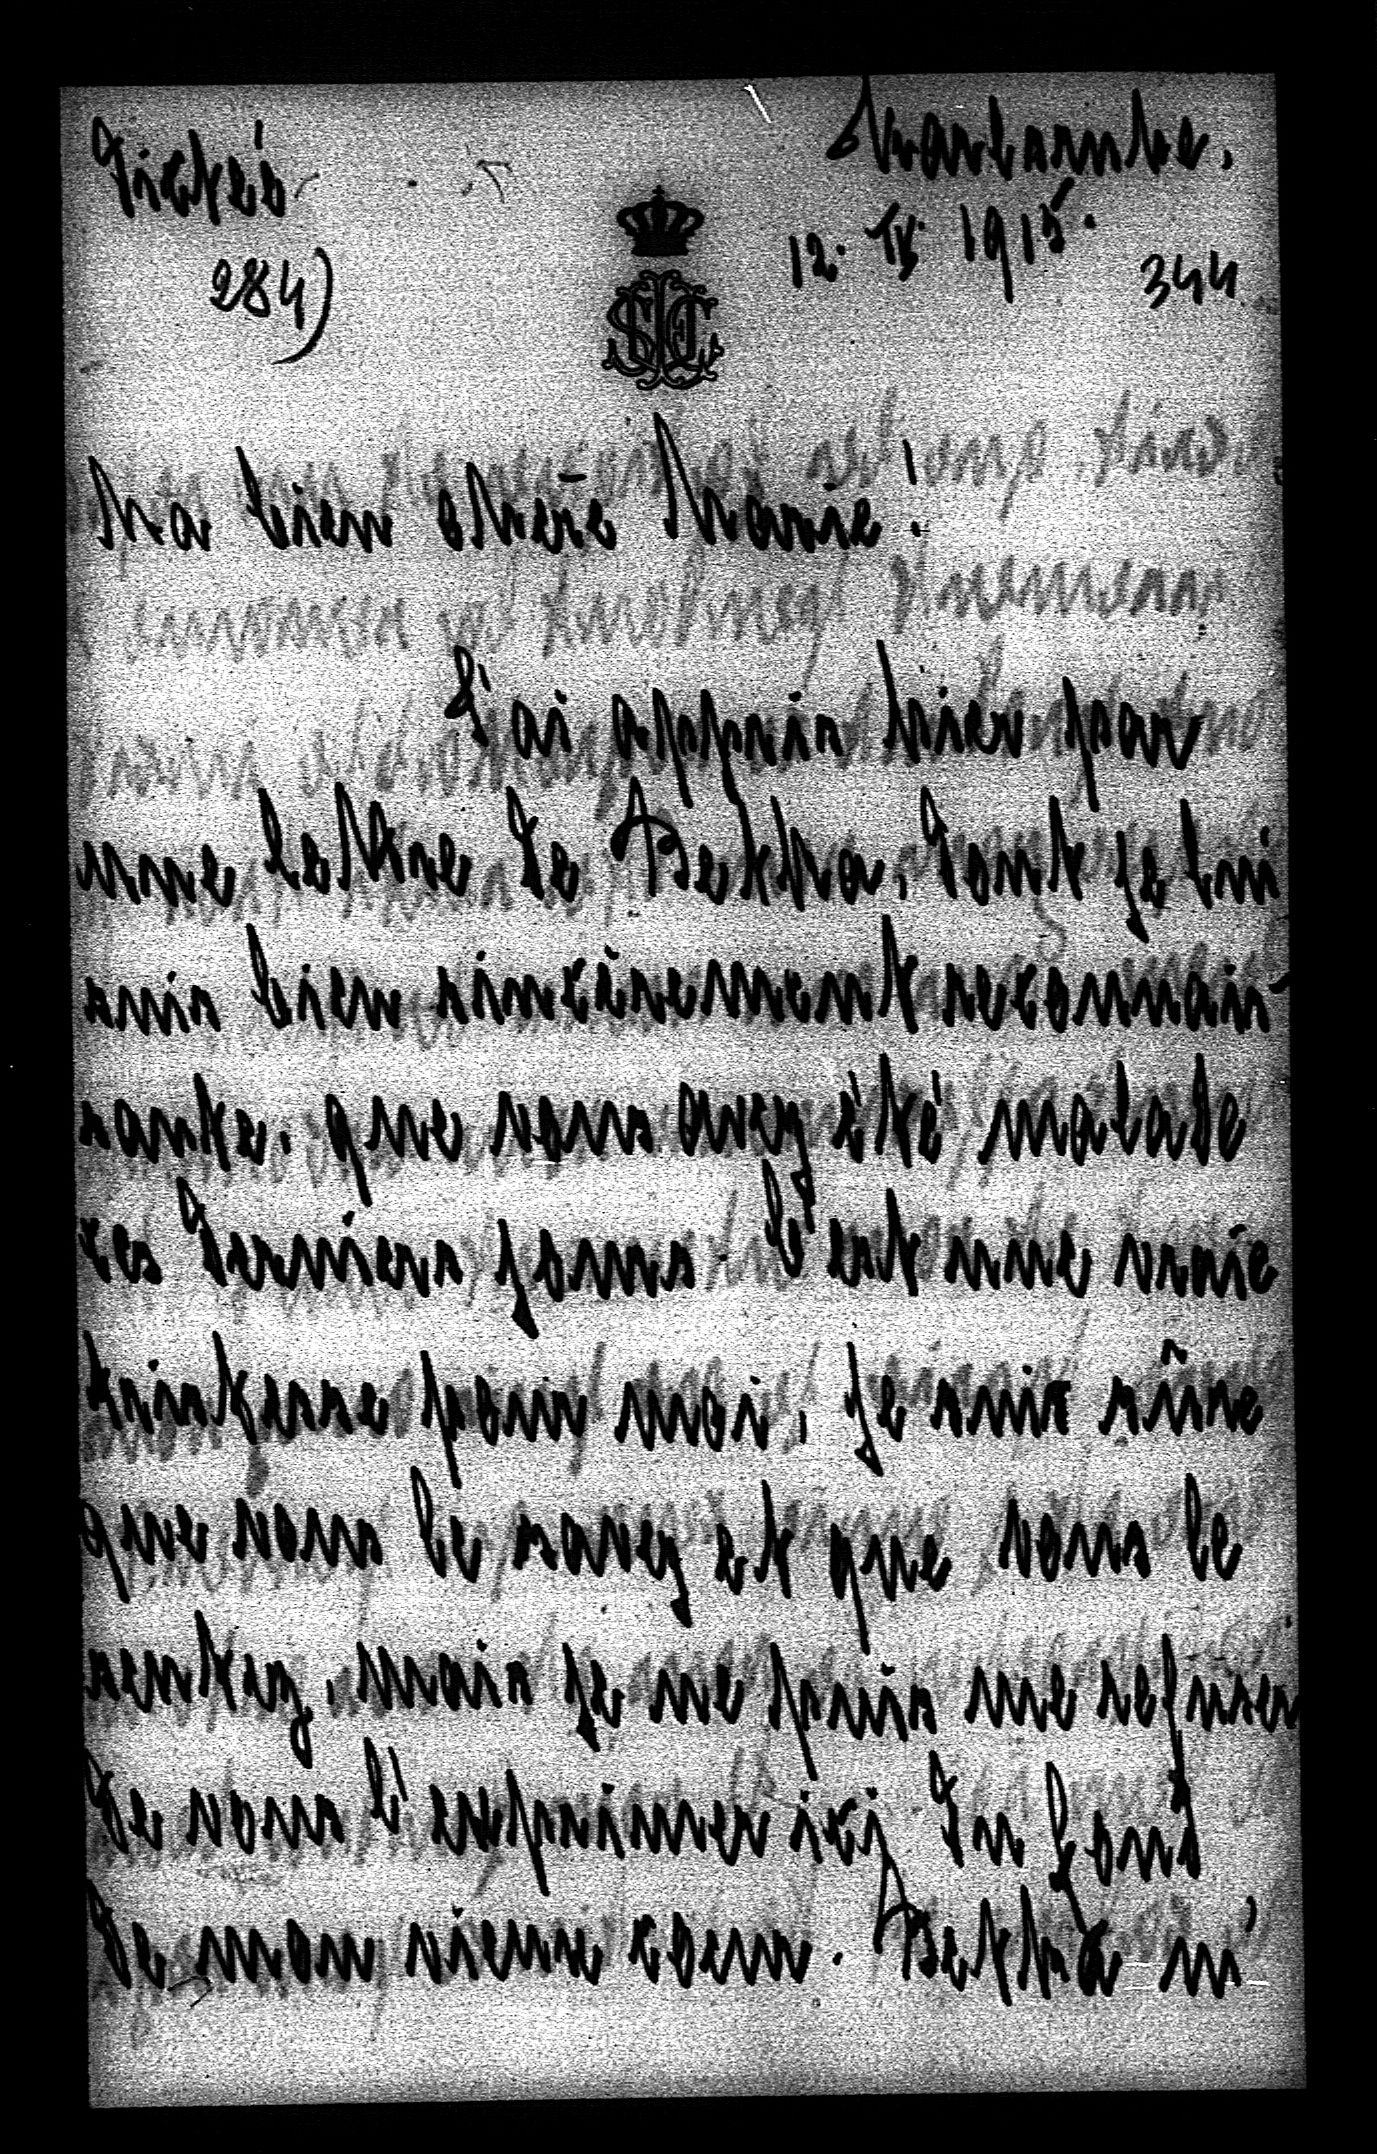 284)
12. IV. 1915.
344
Ma bien chère Marie!
J'ai appris hier par
une lettre de Bertha, dont je lui
suis bien sincèrement reconnais-
sante, que vous avez été malade
ces derniers jours. C'est une vraie
tristesse pour moi, je suis sûre
que vous le savez et que vous le
sentez, mais je ne puis me refuser
de vous l'exprimer ici du fond
de mon vieux coeur. Bertha m'